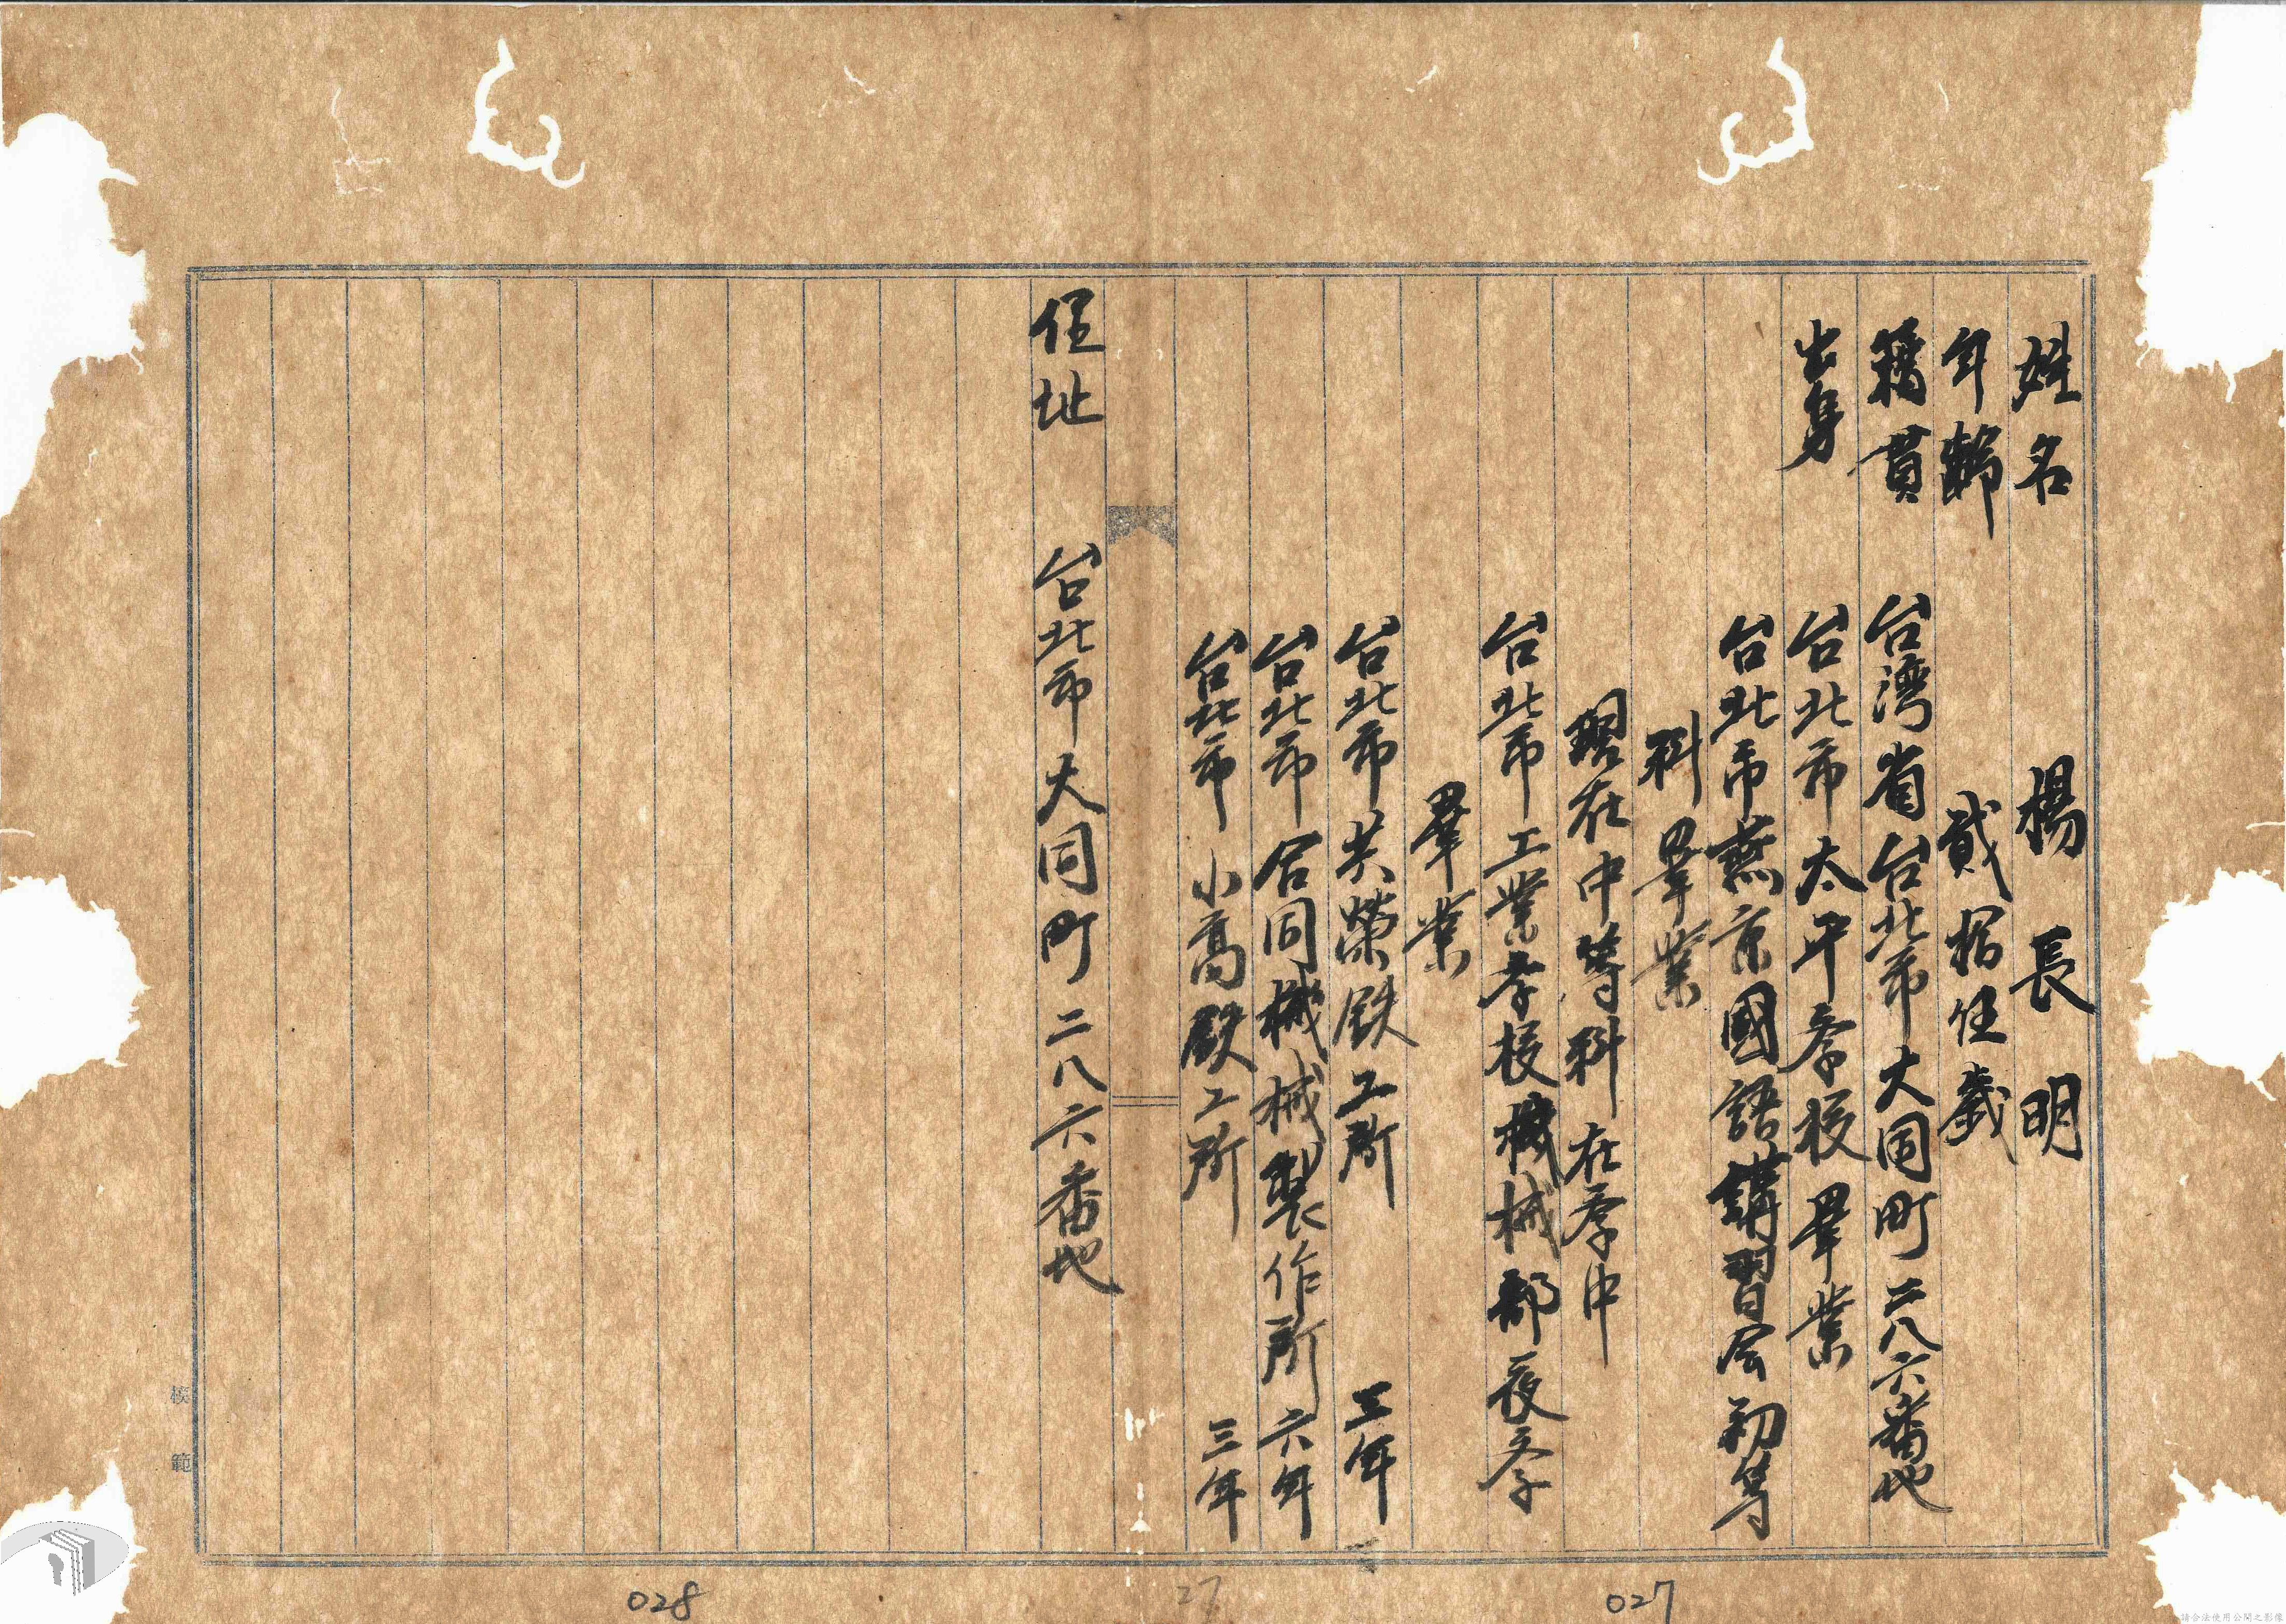 姓名　楊長明
年齡　貳拾任歲
籍貫　台湾省台北市大同町二八六番地
出身　台北市太平学校畢業
台北市燕京國語講習会初等
科畢業
現在中等科在学中
台北市工業学校機械部夜学
畢業
台北市共榮鉄工所　三年
台北市合同機械製作所　六年
台北市小高鉄工所　三年
住址　台北市大同町二八六番地
模範
027
27
028
請合法使用公開之影像